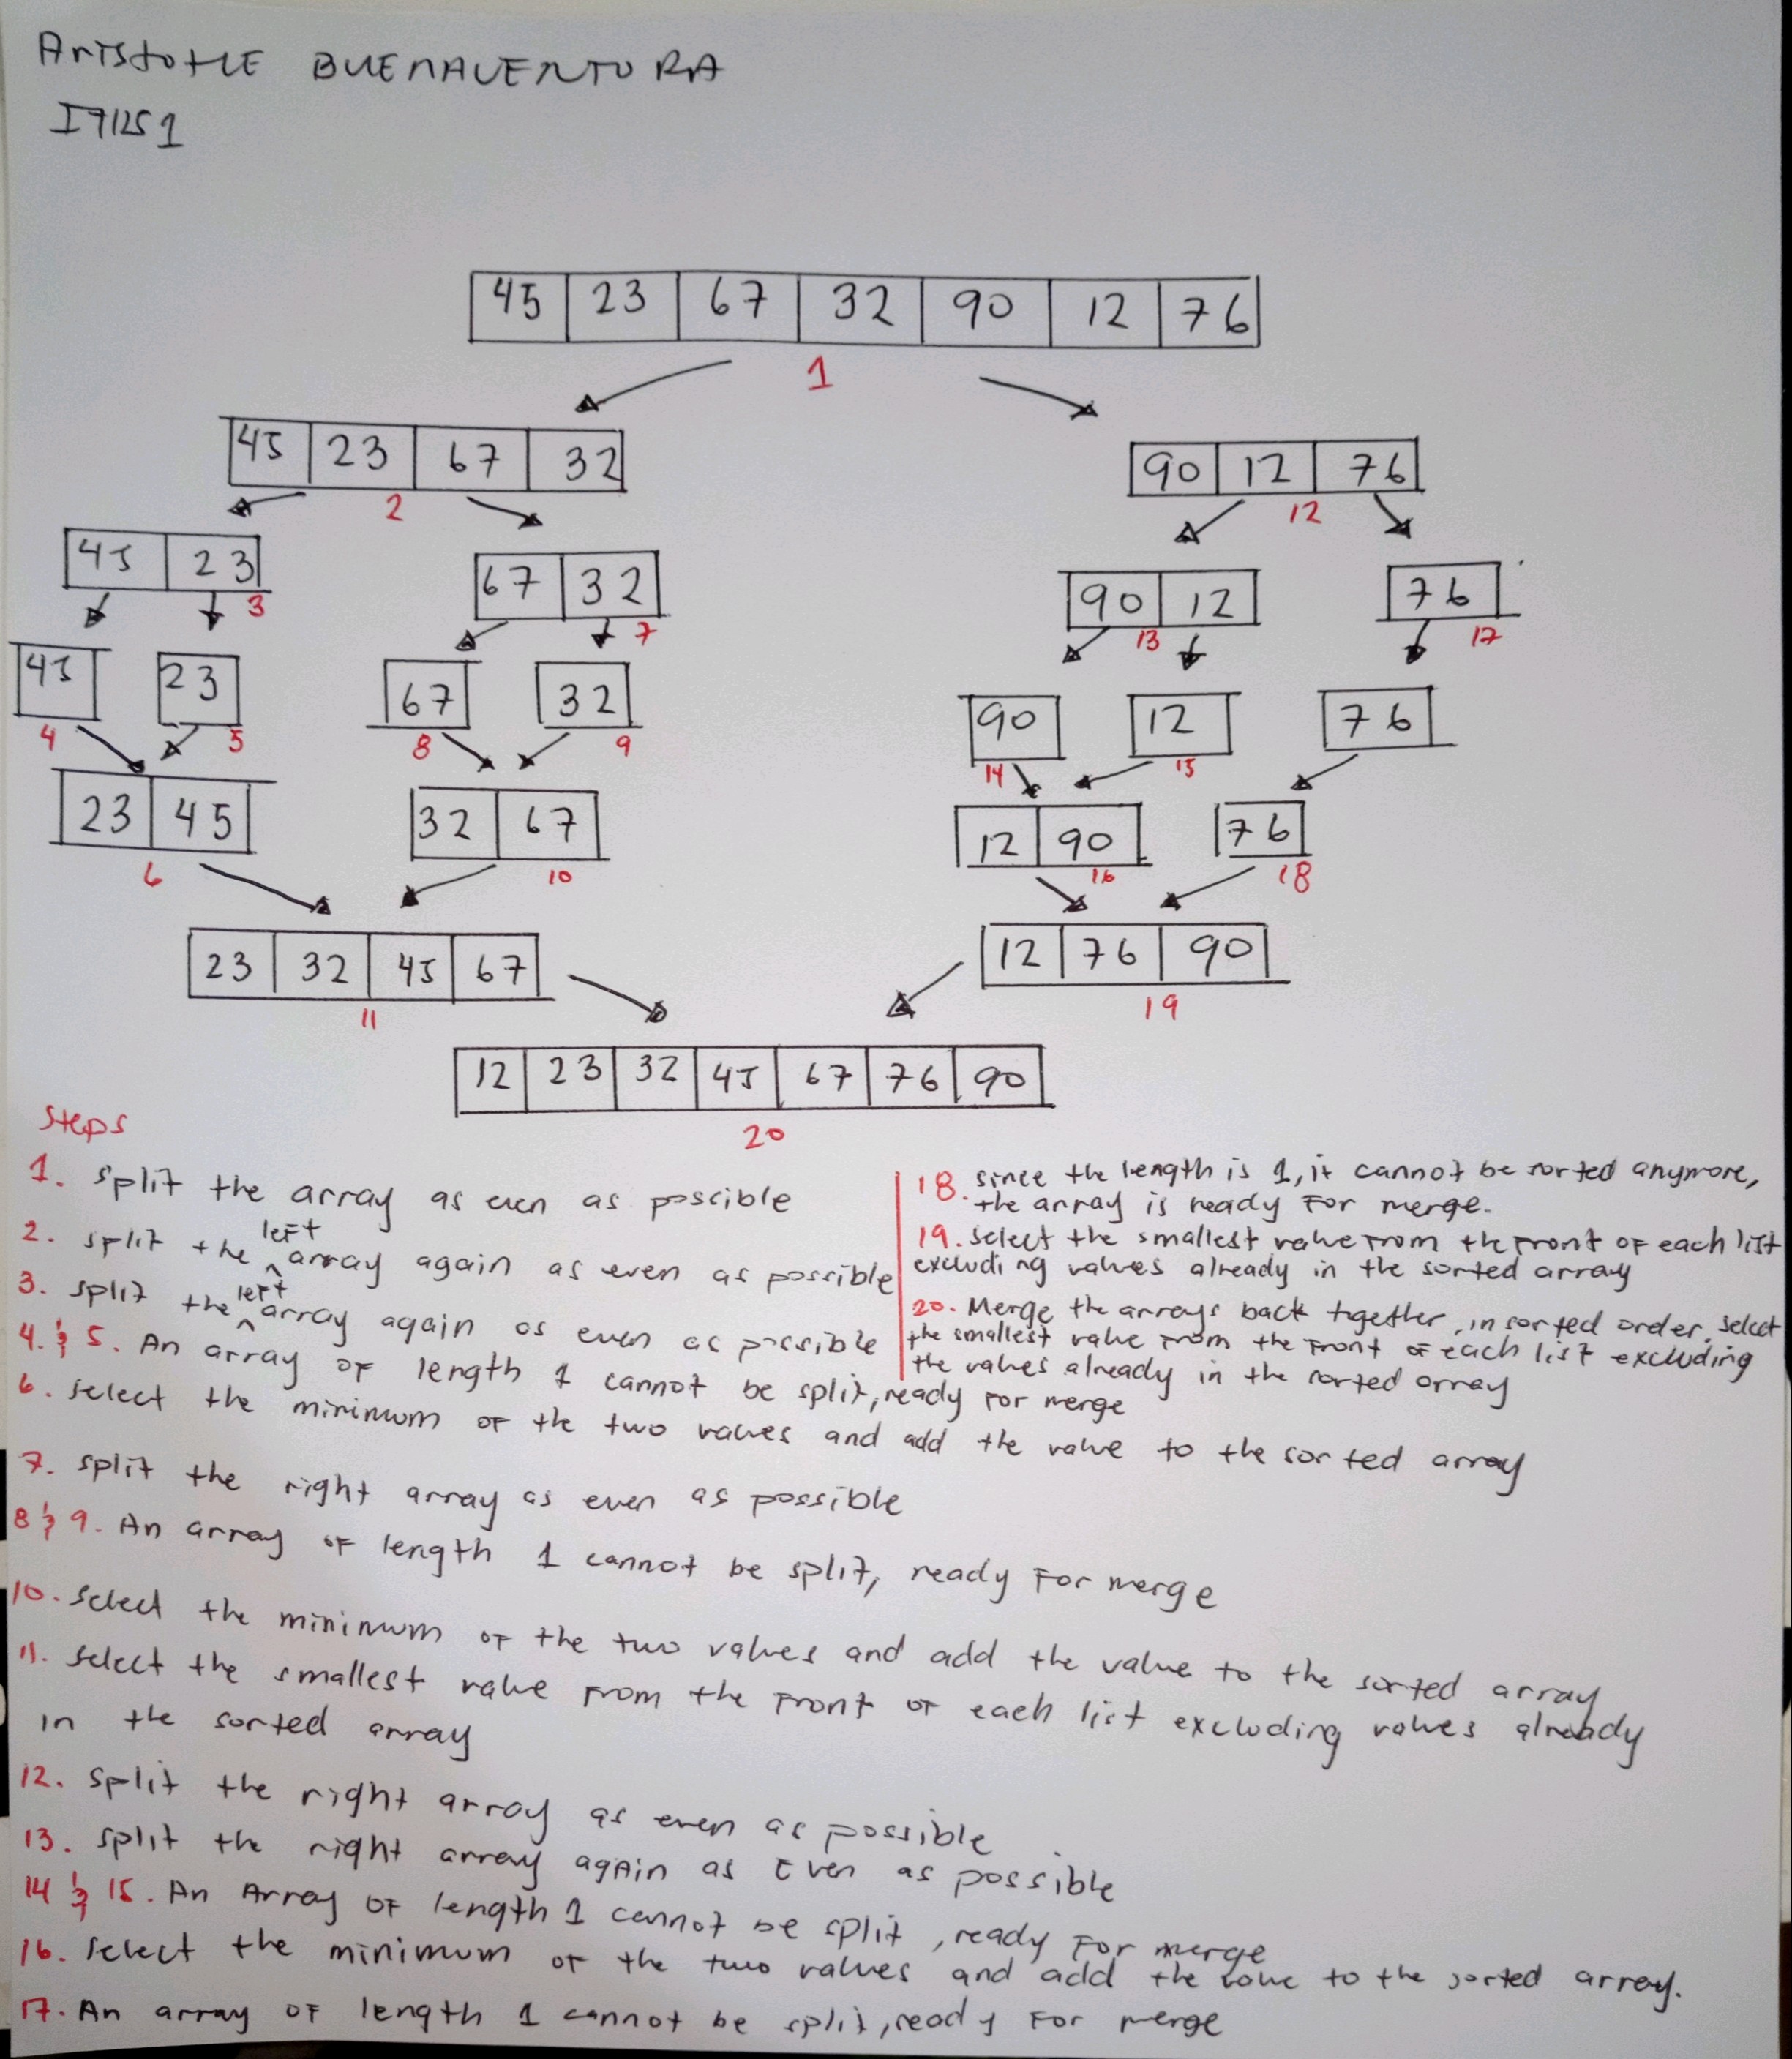 AriStotLE BUENAVENTURA
45 23 67 32 90 12 76
1
45 23 67 32
90 12 76
2
12
45 23
67 32
90 12
76
3
7
13
17
45
23
67
32
90
12
76
4
5
8
9
14
15
23 45
32 67
12 90
76
6
10
16
18
23 32 45 67
12 76 90
11
19
12 23 32 45 67 76 90
20
Steps
1. split the array as even as possible
2. split the left array again as even as possible
3. split the left array again as even as possible
4. & 5. An array of length 1 cannot be split, ready for merge
6. select the minimum of the two values and add the value to the sorted array
7. split the right array as even as possible
8 & 9. An array of length 1 cannot be split, ready for merge
10. select the minimum of the two values and add the value to the sorted array
11. select the smallest value from the front of each list excluding values already
in the sorted array
12. split the right array as even as possible
13. split the right array again as Even as possible
14 & 15. An Array of length 1 cannot be split, ready for merge
16. select the minimum of the two values and add the value to the sorted array.
17. An array of length 1 cannot be split, ready for merge
18. since the length is 1, it cannot be sorted anymore,
the array is ready for merge.
19. select the smallest value from the front of each list
excluding values already in the sorted array
20. Merge the arrays back together, in sorted order, select
the smallest value from the front of each list excluding
the values already in the sorted array